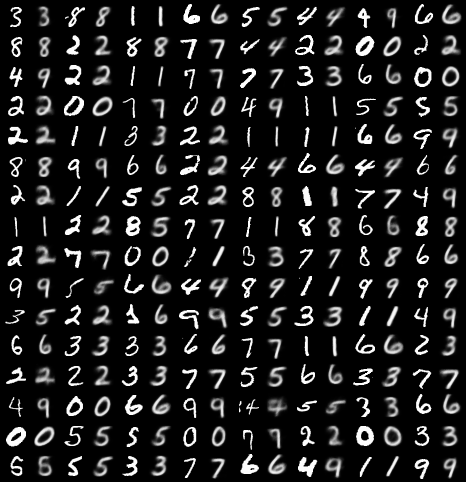 3 3 8 8 1 1 6 6 5 5 4 4 4 9 6 6
8 8 2 2 8 8 7 7 4 4 2 2 0 0 2 2
4 9 2 2 1 1 7 7 7 7 3 3 6 6 0 0
2 2 0 0 7 7 0 0 4 9 1 1 5 5 5 5
2 2 1 1 3 3 2 2 1 1 1 1 6 6 9 9
8 8 9 9 6 6 2 2 4 4 6 6 4 4 6 6
2 2 1 1 5 5 2 2 8 8 1 1 7 7 4 9
1 1 2 2 8 5 7 7 1 1 8 8 6 6 8 8
2 2 7 7 0 0 1 1 3 3 7 7 8 8 6 6
9 9 5 5 6 6 4 4 8 9 1 1 9 9 9 9
3 5 2 2 1 6 9 9 5 5 3 3 1 1 4 9
6 6 3 3 3 3 6 6 7 7 1 1 6 6 2 3
2 2 2 2 3 3 7 7 5 5 6 6 3 3 7 7
4 9 0 0 6 6 9 9 4 5 5 3 3 6 6
0 0 5 5 5 5 0 0 7 9 2 2 0 0 3 3
5 5 5 5 3 3 7 7 6 6 4 9 1 1 9 9